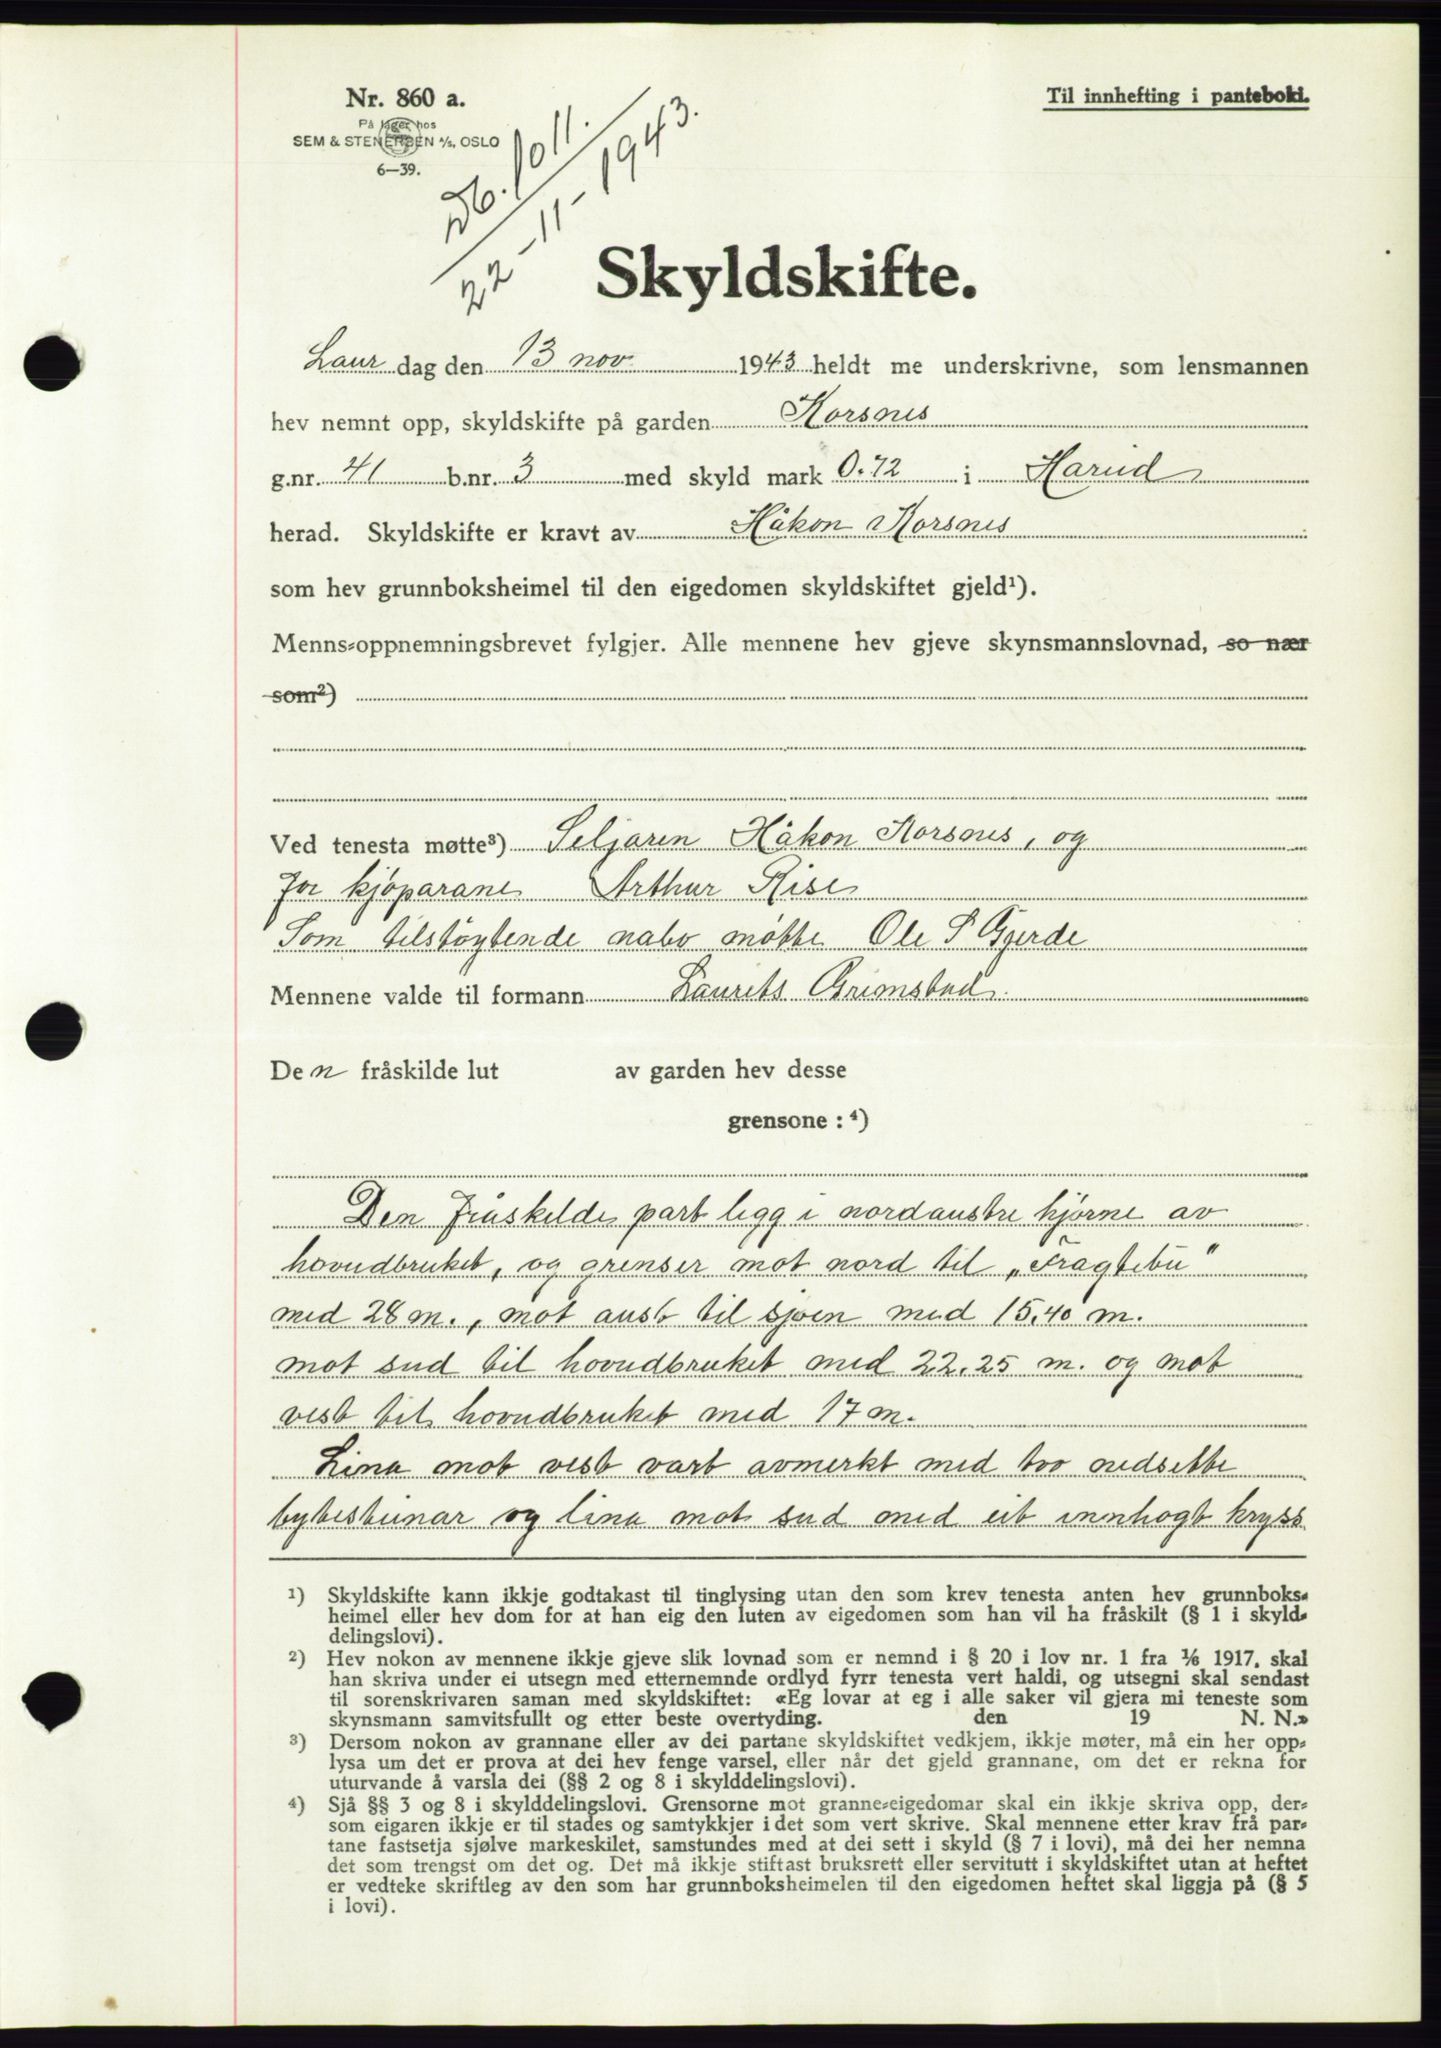 Nr. 860 a.
På lager hos
SEM & STENERSEN A/S, OSLO
6—39.
Til innhefting i panteboki.
Db. 1011.
22-11-1943.
Skyldskifte.
Laur dag den 13 nov 1943 heldt me underskrivne, som lensmannen
hev nemnt opp, skyldskifte på garden Korsnes
g.nr. 41 b.nr. 3 med skyld mark 0.72 i Hareid
herad. Skyldskifte er kravt av Håkon Korsnes
som hev grunnboksheimel til den eigedomen skyldskiftet gjeld¹).
Menns-oppnemningsbrevet fylgjer. Alle mennene hev gjeve skynsmannslovnad, so nær
som²)
Ved tenesta møtte³) Seljaren Håkon Korsnes, og
for kjøparane Arthur Rise
Som tilstøytende nabo møtte Ole S Gjerde
Mennene valde til formann Laurits Grimstad.
Den fråskilde lut av garden hev desse
grensone : ⁴)
Den fråskilde part ligg i nordaustre hjørne av
hovudbruket, og grenser mot nord til „Fragtebu"
med 28 m., mot aust til sjøen med 15,40 m.
mot sud til hovudbruket med 22.25 m. og mot
vest til hovudbruket med 17 m.
Lina mot vest vart avmerkt med tvo nedsette
bytesteinar og lina mot sud med eit innhogt kryss
¹) Skyldskifte kann ikkje godtakast til tinglysing utan den som krev tenesta anten hev grunnboks-
heimel eller hev dom for at han eig den luten av eigedomen som han vil ha fråskilt (§ 1 i skyld-
delingslovi).
²) Hev nokon av mennene ikkje gjeve slik lovnad som er nemnd i § 20 i lov nr. 1 fra 1/6 1917, skal
han skriva under ei utsegn med etternemnde ordlyd fyrr tenesta vert haldi, og utsegni skal sendast
til sorenskrivaren saman med skyldskiftet: «Eg lovar at eg i alle saker vil gjera mi teneste som
skynsmann samvitsfullt og etter beste overtyding. den 19 N. N.»
³) Dersom nokon av grannane eller av dei partane skyldskiftet vedkjem, ikkje møter, må ein her opp-
lysa um det er prova at dei hev fenge varsel, eller når det gjeld grannane, om det er rekna for
uturvande å varsla dei (§§ 2 og 8 i skylddelingslovi).
⁴) Sjå §§ 3 og 8 i skylddelingslovi. Grensorne mot granne-eigedomar skal ein ikkje skriva opp, der-
som eigaren ikkje er til stades og samtykkjer i det som vert skrive. Skal mennene etter krav frå par-
tane fastsetja sjølve markeskilet, samstundes med at dei sett i skyld (§ 7 i lovi), må dei her nemna
det som trengst om det og. Det må ikkje stiftast bruksrett eller servitutt i skyldskiftet utan at heftet
er vedteke skriftleg av den som har grunnboksheimelen til den eigedomen heftet skal liggja på (§ 5
i lovi).